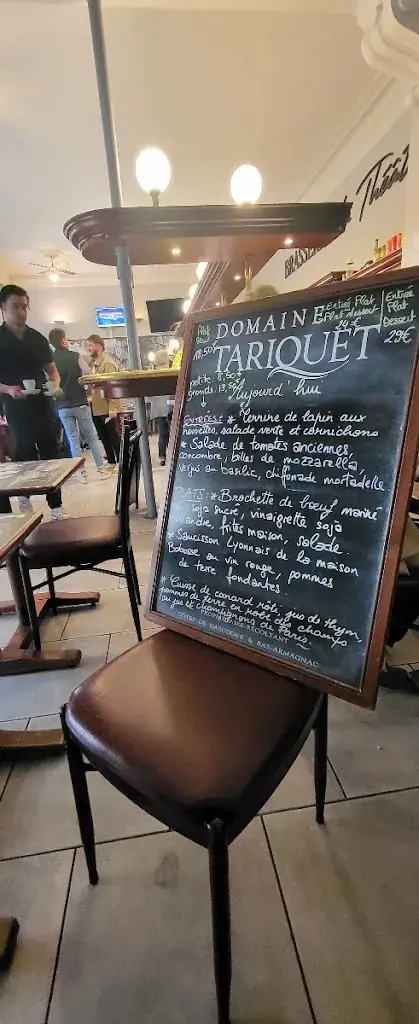 BRASSERIE
Théât
DOMAINE
TARIQUET
Plat
Seul
18,50
Entrée Plat
Plat dessert
24 €
Entrée
Plat
Dessert
29€
petite : 8,50€
grande : 13,50€
Aujourd'hui
ENTRÉES: * Terrine de lapin aux
noisettes, salade verte et cornichons
* Salade de tomates anciennes,
concombre, billes de mozzarella,
verjus au basilic, chiffonade mortadelle.
PLATS: * Brochette de bœuf mariné
soja sucré, vinaigrette soja
frites maison, salade.
* Saucisson Lyonnais de la maison
Bobosse, au vin rouge, pommes
de terre fondantes.
* Cuisse de canard rôti, jus de thym,
pommes de terre en robe des champs
au jus et champignons de Paris.
PROPRIÉTAIRE-RÉCOLTANT
CÔTES DE GASCOGNE & BAS-ARMAGNAC